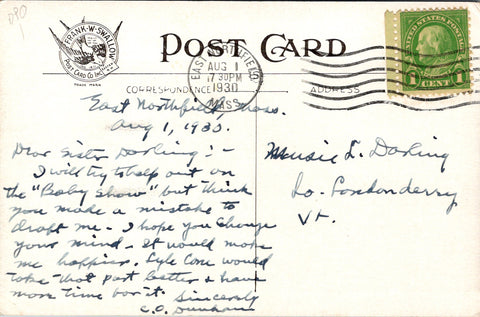 DPO
1
FRANK·W·SWALLOW
POST CARD Co. Inc.
TRADE MARK
POST CARD
EAST NORTHFIELD
AUG 1
7 30PM
1930
MASS.
UNITED STATES POSTAGE
1 CENT 1
CORRESPONDENCE
ADDRESS
East Northfield, Mass.
Aug 1, 1930.
Dear Sister Darling:-
I will try to help out on
the "Baby Show" but think
you made a mistake to
draft me - I hope you change
your mind - It would make
me happier. Lyle Cone would
take that part better & have
more time for it. Sincerely
C.O. Dunham
L. Darling
So. Londonderry
Vt.